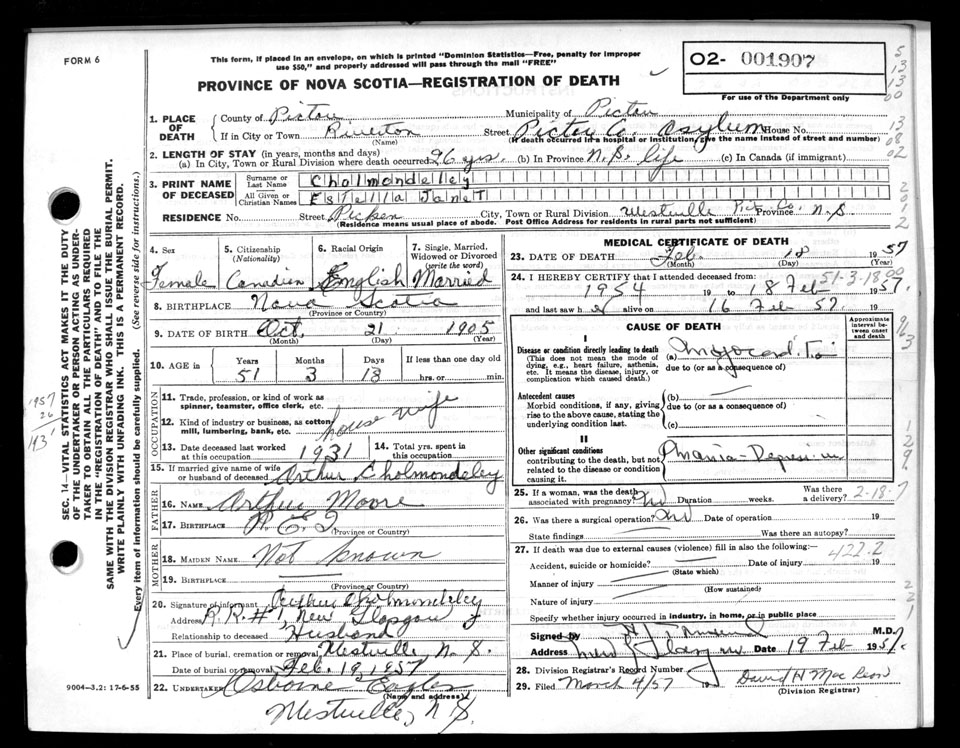 FORM 6
This form, if placed in an envelope, on which is printed "Dominion Statistics—Free, penalty for improper
use $50," and properly addressed will pass through the mail "FREE"
PROVINCE OF NOVA SCOTIA—REGISTRATION OF DEATH
O2- 001907
For use of the Department only
1. PLACE OF DEATH
County of Pictou Municipality of Pictou
If in City or Town Riverton Street Pictou Co. Asylum House No.
(Name) (If death occurred in a hospital or institution, give the name instead of street and number)
2. LENGTH OF STAY (in years, months and days)
(a) In City, Town or Rural Division where death occurred 26 yrs. (b) In Province N.S. life (c) In Canada (if immigrant)
3. PRINT NAME OF DECEASED
Surname or Last Name Cholmondelley
All Given or Christian Names Estella Janet
RESIDENCE No. Street Picken City, Town or Rural Division Westville Pict. Co. Province N.S
(Residence means usual place of abode. Post Office Address for residents in rural parts not sufficient)
4. Sex Female
5. Citizenship (Nationality) Canadien
6. Racial Origin English
7. Single, Married, Widowed or Divorced (write the word) Married
8. BIRTHPLACE Nova Scotia
(Province or Country)
9. DATE OF BIRTH Oct. 21 1905
(Month) (Day) (Year)
10. AGE in Years 51 Months 3 Days 13 If less than one day old hrs. or min.
OCCUPATION
11. Trade, profession, or kind of work as spinner, teamster, office clerk, etc.
12. Kind of industry or business, as cotton mill, lumbering, bank, etc.
house wife
13. Date deceased last worked at this occupation 1931
14. Total yrs. spent in this occupation
15. If married give name of wife or husband of deceased Arthur Cholmondeley
FATHER
16. NAME Arthur Moore
17. BIRTHPLACE P.E.I
(Province or Country)
MOTHER
18. MAIDEN NAME Not known
19. BIRTHPLACE
(Province or Country)
20. Signature of informant Arthur Cholmondeley
Address R.R.#1, New Glasgow
Relationship to deceased Husband
21. Place of burial, cremation or removal Westville, N.S.
Date of burial or removal Feb. 19, 1957
22. UNDERTAKER Osborne Eagles
(Name and address)
Westville, N.S.
MEDICAL CERTIFICATE OF DEATH
23. DATE OF DEATH Feb. 18 1957
(Month) (Day) (Year)
24. I HEREBY CERTIFY that I attended deceased from: 51-3-18 00
1954 19 to 18 Feb 1957.
and last saw h alive on 16 Feb 57. 19
CAUSE OF DEATH
Approximate interval between onset and death
I
Disease or condition directly leading to death
(This does not mean the mode of dying, e.g., heart failure, asthenia, etc. It means the disease, injury, or complication which caused death.)
(a)
due to (or as a consequence of)
Antecedent causes
Morbid conditions, if any, giving rise to the above cause, stating the underlying condition last.
(b)
due to (or as a consequence of)
(c)
II
Other significant conditions
contributing to the death, but not related to the disease or condition causing it.
25. If a woman, was the death associated with pregnancy? No Duration weeks. Was there a delivery? 2-18-7
26. Was there a surgical operation? No Date of operation 19
State findings Was there an autopsy?
27. If death was due to external causes (violence) fill in also the following:— 422.2
Accident, suicide or homicide? Date of injury 19
(State which)
Manner of injury
(How sustained)
Nature of injury
Specify whether injury occurred in industry, in home, or in public place
Signed by M.D.
Address New Glasgow Date 19 Feb 1957.
28. Division Registrar's Record Number
29. Filed March 4/57 19 David H MacLeod
(Division Registrar)
9004—3.2: 17-6-55
SEC. 14—VITAL STATISTICS ACT MAKES IT THE DUTY
OF THE UNDERTAKER OR PERSON ACTING AS UNDER-
TAKER TO OBTAIN ALL THE PARTICULARS REQUIRED
IN THE "REGISTRATION OF DEATH" AND TO FILE THE
SAME WITH THE DIVISION REGISTRAR WHO SHALL ISSUE THE BURIAL PERMIT.
WRITE PLAINLY WITH UNFADING INK. THIS IS A PERMANENT RECORD.
Every item of information should be carefully supplied. (See reverse side for instructions.)
1957
26
1931